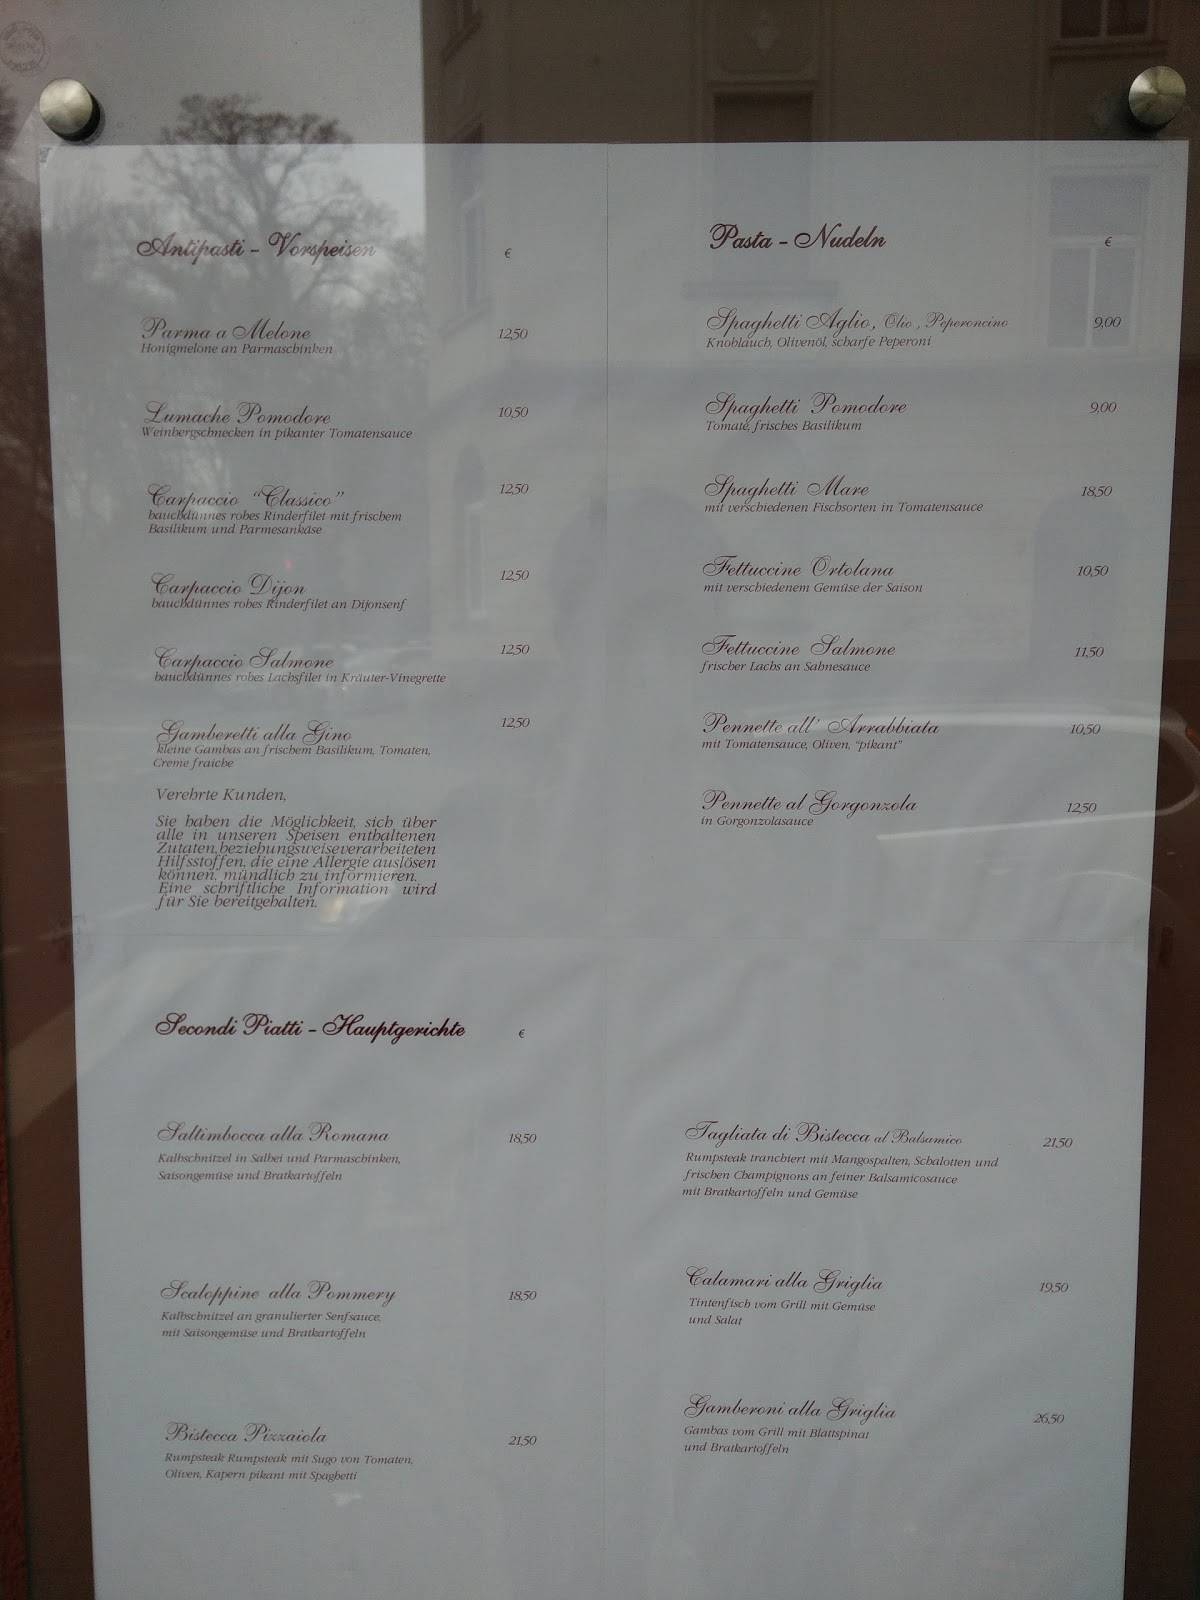 Antipasti - Vorspeisen €
Parma a Melone 12,50
Honigmelone an Parmaschinken
Lumache Pomodore 10,50
Weinbergschnecken in pikanter Tomatensauce
Carpaccio "Classico" 12,50
hauchdünnes rohes Rinderfilet mit frischem
Basilikum und Parmesankäse
Carpaccio Dijon 12,50
hauchdünnes rohes Rinderfilet an Dijonsenf
Carpaccio Salmone 12,50
hauchdünnes rohes Lachsfilet in Kräuter-Vinegrette
Gamberetti alla Gino 12,50
kleine Gambas an frischem Basilikum, Tomaten,
Creme fraiche
Verehrte Kunden,
Sie haben die Möglichkeit, sich über
alle in unseren Speisen enthaltenen
Zutaten, beziehungsweise verarbeiteten
Hilfsstoffen, die eine Allergie auslösen
können, mündlich zu informieren.
Eine schriftliche Information wird
für Sie bereitgehalten.
Pasta - Nudeln €
Spaghetti Aglio, Olio, Peperoncino 9,00
Knoblauch, Olivenöl, scharfe Peperoni
Spaghetti Pomodore 9,00
Tomate, frisches Basilikum
Spaghetti Mare 18,50
mit verschiedenen Fischsorten in Tomatensauce
Fettuccine Ortolana 10,50
mit verschiedenem Gemüse der Saison
Fettuccine Salmone 11,50
frischer Lachs an Sahnesauce
Pennette all' Arrabbiata 10,50
mit Tomatensauce, Oliven, "pikant"
Pennette al Gorgonzola 12,50
in Gorgonzolasauce
Secondi Piatti - Hauptgerichte €
Saltimbocca alla Romana 18,50
Kalbschnitzel in Salbei und Parmaschinken,
Saisongemüse und Bratkartoffeln
Scaloppine alla Pommery 18,50
Kalbschnitzel an granulierter Senfsauce,
mit Saisongemüse und Bratkartoffeln
Bistecca Pizzaiola 21,50
Rumpsteak Rumpsteak mit Sugo von Tomaten,
Oliven, Kapern pikant mit Spaghetti
Tagliata di Bistecca al Balsamico 21,50
Rumpsteak tranchiert mit Mangospalten, Schalotten und
frischen Champignons an feiner Balsamicosauce
mit Bratkartoffeln und Gemüse
Calamari alla Griglia 19,50
Tintenfisch vom Grill mit Gemüse
und Salat
Gamberoni alla Griglia 26,50
Gambas vom Grill mit Blattspinat
und Bratkartoffeln